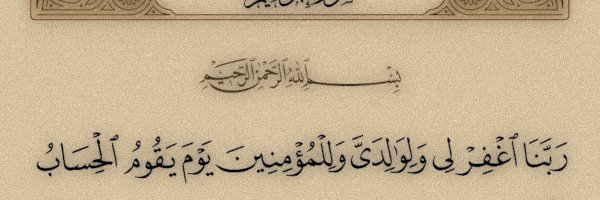 بِسْمِ ٱللَّهِ ٱلرَّحْمَٰنِ ٱلرَّحِيمِ
رَبَّنَا ٱغْفِرْ لِى وَلِوَٰلِدَىَّ وَلِلْمُؤْمِنِينَ يَوْمَ يَقُومُ ٱلْحِسَابُ